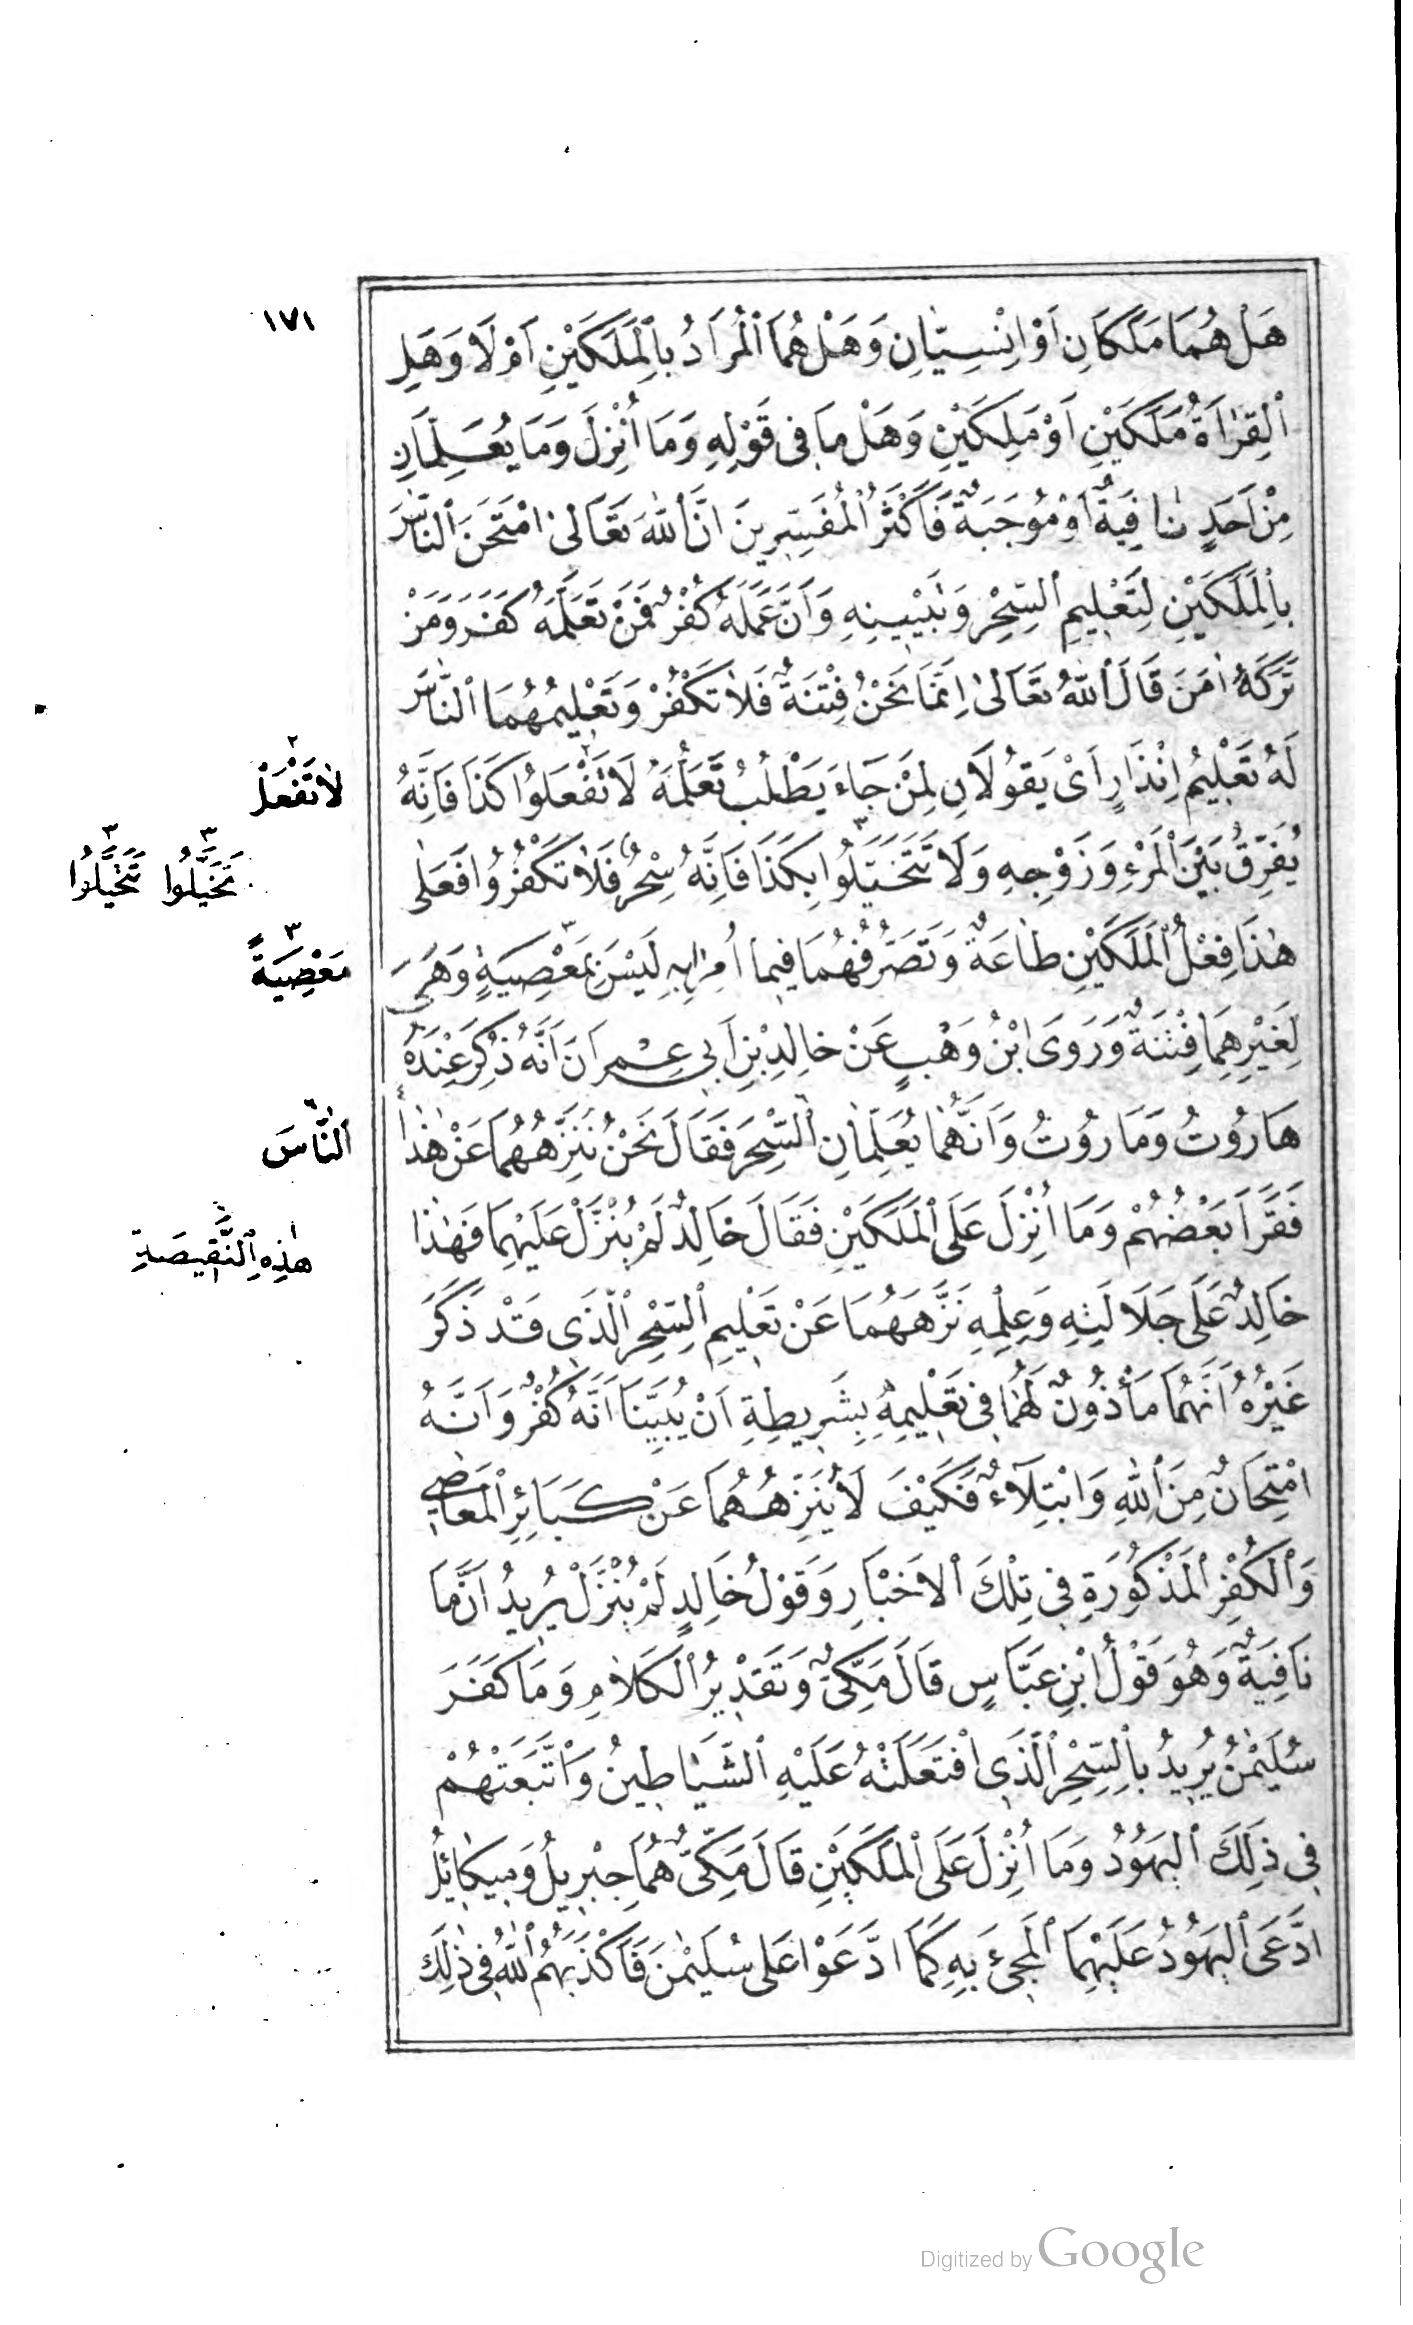 ١٧١
هَلْ هُمَا مَلَكَانِ اَوْ اِنْسِيَّانِ وَهَلْ هُمَا ٱلْمُرَادُ بِٱلْمَلَكَيْنِ اَوْ لَا وَهَلِ
ٱلْقِرَاءَةُ مَلَكَيْنِ اَوْ مَلِكَيْنِ وَهَلْ مَا فِي قَوْلِهِ وَمَا اُنْزِلَ وَمَا يُعَلِّمَانِ
مِنْ اَحَدٍ نَافِيَةٌ اَوْ مُوجَبَةٌ فَاَكْثَرُ ٱلْمُفَسِّرِينَ اَنَّ ٱللّٰهَ تَعَالَى امْتَحَنَ ٱلنَّاسَ
بِٱلْمَلَكَيْنِ لِتَعْلِيمِ ٱلسِّحْرِ وَتَبْيِينِهِ وَاَنَّ عَمَلَهُ كُفْرٌ فَمَنْ تَعَلَّمَهُ كَفَرَ وَمَنْ
تَرَكَهُ اٰمَنَ قَالَ ٱللّٰهُ تَعَالَى اِنَّمَا نَحْنُ فِتْنَةٌ فَلَا تَكْفُرْ وَتَعْلِيمُهُمَا ٱلنَّاسَ
لَهُ تَعْلِيمُ اِنْذَارٍ اَىْ يَقُولَانِ لِمَنْ جَاءَ يَطْلُبُ تَعَلُّمَهُ لَا تَفْعَلُوا كَذَا فَاِنَّهُ
لَا تَفْعَلْ
يُفَرِّقُ بَيْنَ ٱلْمَرْءِ وَزَوْجِهِ وَلَا تَتَخَيَّلُوا بِكَذَا فَاِنَّهُ سِحْرٌ فَلَا تَكْفُرُوا فَعَلَى
تَخَيَّلُوا تَتَحَيَّلُوا
هٰذَا فِعْلُ ٱلْمَلَكَيْنِ طَاعَةٌ وَتَصَرُّفُهُمَا فِيمَا اُمِرَا بِهِ لَيْسَ بِمَعْصِيَةٍ وَهِىَ
مَعْصِيَةً
لِغَيْرِهِمَا فِتْنَةٌ وَرَوَى ابْنُ وَهْبٍ عَنْ خَالِدِ بْنِ اَبِي عِمْرَانَ اَنَّهُ ذُكِرَ عِنْدَهُ
هَارُوتُ وَمَارُوتُ وَاَنَّهُمَا يُعَلِّمَانِ ٱلسِّحْرَ فَقَالَ نَحْنُ نُنَزِّهُهُمَا عَنْ هٰذَا
ٱلنَّاسَ
فَقَرَاَ بَعْضُهُمْ وَمَا اُنْزِلَ عَلَى ٱلْمَلَكَيْنِ فَقَالَ خَالِدٌ لَمْ يُنْزَّلْ عَلَيْهِمَا فَهٰذَا
هٰذِهِ ٱلنَّقِيصَةِ
خَالِدٌ عَلَى جَلَالَتِهِ وَعِلْمِهِ نَزَّهَهُمَا عَنْ تَعْلِيمِ ٱلسِّحْرِ ٱلَّذِى قَدْ ذَكَرَ
غَيْرُهُ اَنَّهُمَا مَأْذُونٌ لَهُمَا فِي تَعْلِيمِهِ بِشَرِيطَةِ اَنْ يُبَيِّنَا اَنَّهُ كُفْرٌ وَاَنَّهُ
امْتِحَانٌ مِنَ ٱللّٰهِ وَابْتِلَاءٌ فَكَيْفَ لَا يُنَزِّهُهُمَا عَنْ كَبَائِرِ ٱلْمَعَاصِي
وَٱلْكُفْرِ ٱلْمَذْكُورَةِ فِي تِلْكَ ٱلْاَخْبَارِ وَقَوْلُ خَالِدٍ لَمْ يُنْزَّلْ يُرِيدُ اَنَّ مَا
نَافِيَةٌ وَهُوَ قَوْلُ ابْنِ عَبَّاسٍ قَالَ مَكِّىٌّ وَتَقْدِيرُ ٱلْكَلَامِ وَمَا كَفَرَ
سُلَيْمٰنُ يُرِيدُ بِٱلسِّحْرِ ٱلَّذِى افْتَعَلَتْهُ عَلَيْهِ ٱلشَّيَاطِينُ وَٱتَّبَعَتْهُمْ
فِي ذٰلِكَ ٱلْيَهُودُ وَمَا اُنْزِلَ عَلَى ٱلْمَلَكَيْنِ قَالَ مَكِّىٌّ هُمَا جِبْرِيلُ وَمِيكَائِلُ
ادَّعَى ٱلْيَهُودُ عَلَيْهِمَا ٱلْمَجِىءَ بِهِ كَمَا ادَّعَوْا عَلَى سُلَيْمٰنَ فَاَكْذَبَهُمُ ٱللّٰهُ فِي ذٰلِكَ
Digitized by Google